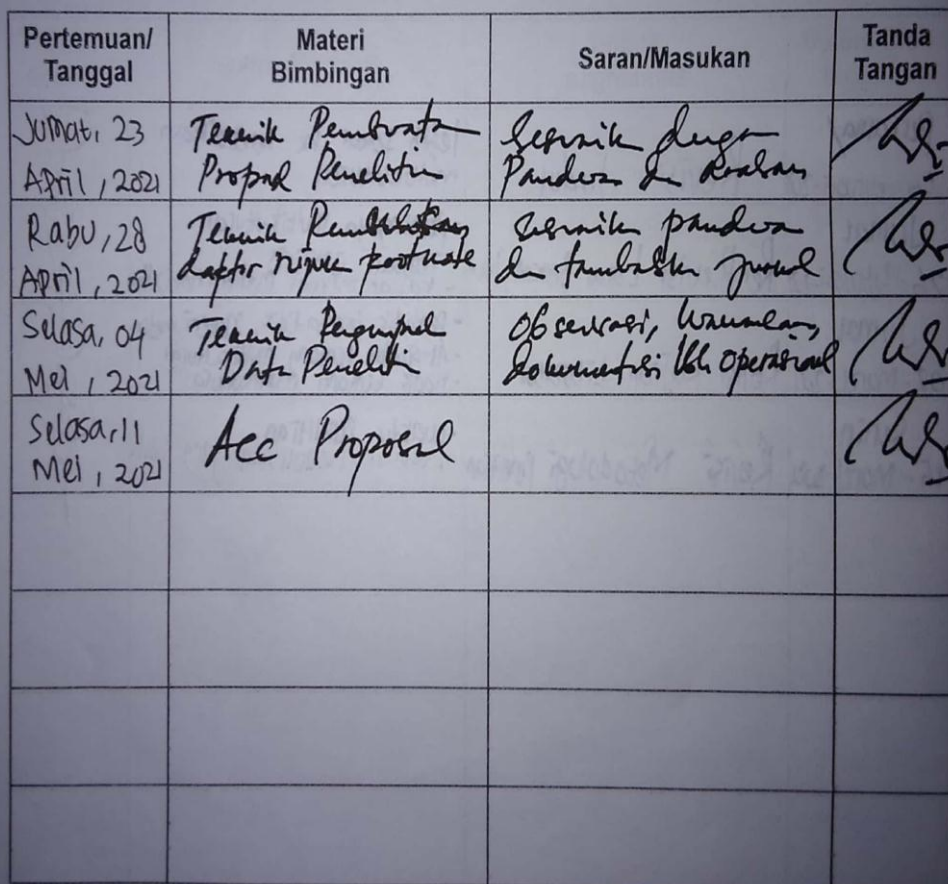 Pertemuan/
Tanggal
Materi
Bimbingan
Saran/Masukan
Tanda
Tangan
Jumat, 23
April, 2021
Teknik Pembuatan
Proposal Penelitian
Sesuaik dengan
Panduan dan
Rabu, 28
April, 2021
Teknik
footnote
Sesuaik panduan
dan tambahkan jurnal
Selasa, 04
Mei, 2021
Teknik Pengumpul
Data Penelitian
Observasi, Wawancara,
dokumentasi operasional
Selasa, 11
Mei, 2021
Acc Proposal